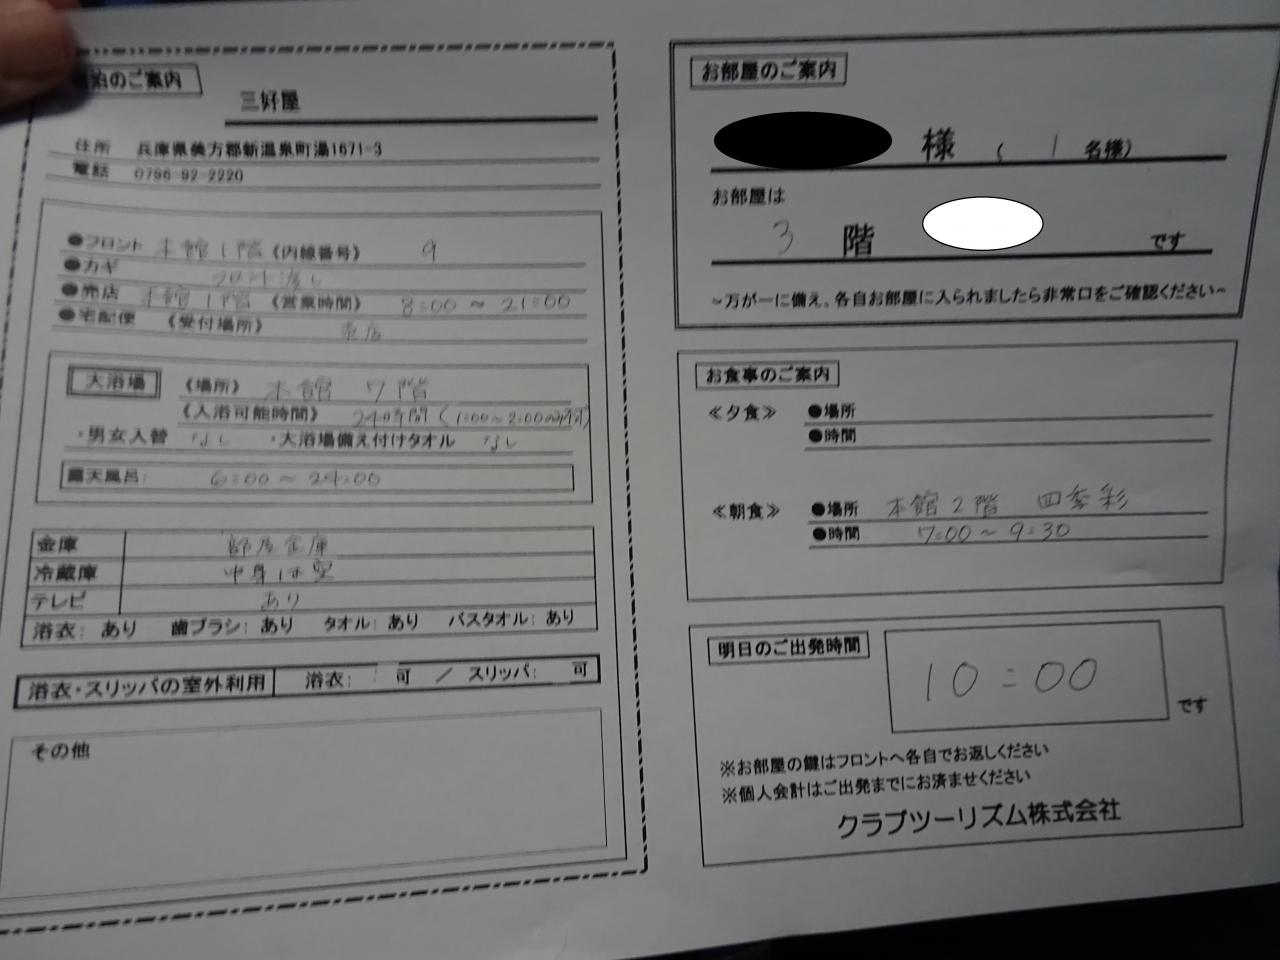 泊のご案内
三好屋
住所 兵庫県美方郡新温泉町湯1671-3
電話 0796-92-2220
●フロント 本館1階 《内線番号》 9
●カギ フロント渡し
●売店 本館1階 《営業時間》 8:00 ~ 21:00
●宅配便 《受付場所》 売店
大浴場 《場所》 本館 7階
《入浴可能時間》 24時間 (1:00~2:00
・男女入替 なし ・大浴場備え付けタオル なし
露天風呂: 6:00 ~ 24:00
金庫 部屋金庫
冷蔵庫 中身は空
テレビ あり
浴衣: あり 歯ブラシ: あり タオル: あり バスタオル: あり
浴衣・スリッパの室外利用 浴衣: 可 / スリッパ: 可
その他
お部屋のご案内
様 ( 1 名様)
お部屋は
3 階 です
~万が一に備え、各自お部屋に入られましたら非常口をご確認ください~
お食事のご案内
≪夕食≫ ●場所
●時間
≪朝食≫ ●場所 本館2階 四季彩
●時間 7:00~9:30
明日のご出発時間 10:00 です
※お部屋の鍵はフロントへ各自でお返しください
※個人会計はご出発までにお済ませください
クラブツーリズム株式会社